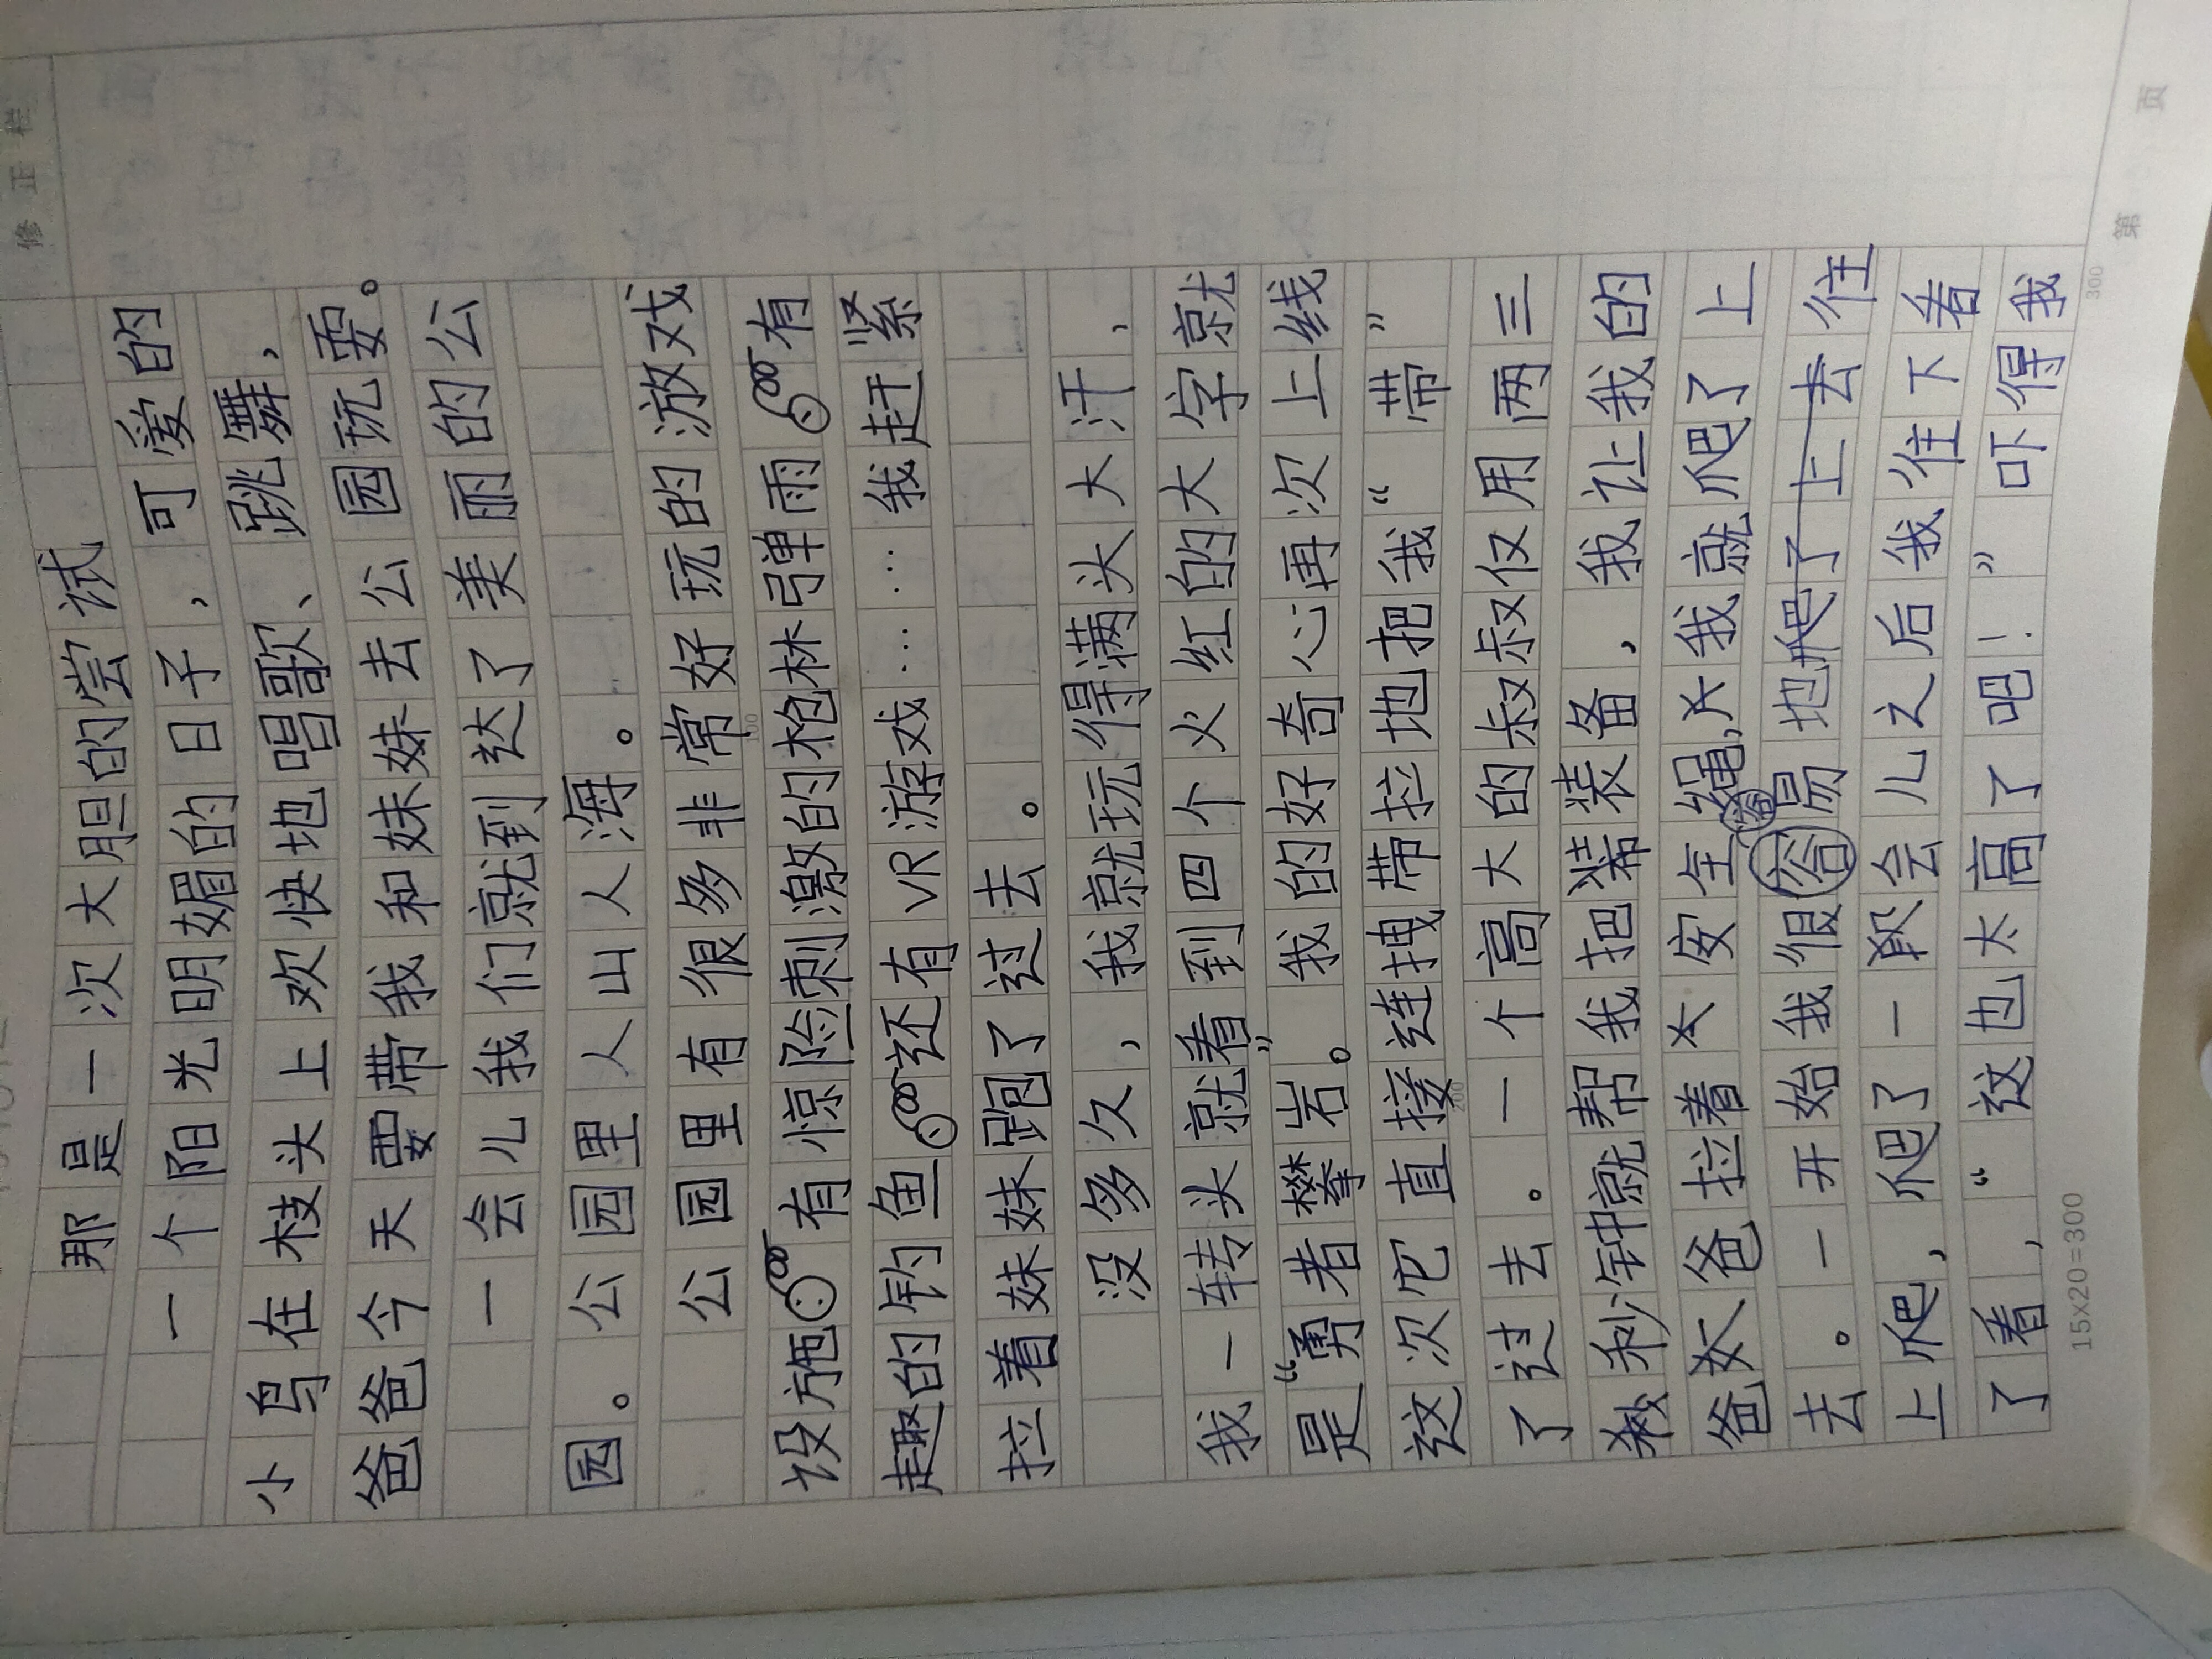 修正栏
那是一次大胆的尝试
一个阳光明媚的日子，可爱的
小鸟在枝头上欢快地唱歌、跳舞，
爸爸今天要带我和妹妹去公园玩耍。
一会儿我们就到达了美丽的公
园。公园里人山人海。
公园里有很多非常好玩的游戏
设施有惊险刺激的枪林弹雨有
趣的钓鱼还有VR游戏……我赶紧
拉着妹妹跑了过去。
没多久，我就玩得满头大汗，
我一转头就看到四个火红的大字就
是“勇者攀岩”。我的好奇心再次上线
这次它直接连拽带拉地把我“带”
了过去。一个高大的叔叔仅用两三
秒钟就帮我把装备，我让我的
爸爸拉着安全绳，我就爬了上
去。一开始我很容易地爬了上去往
上爬，爬了一段会儿之后我往下看
了看，“这也太高了吧！”吓得我
100
200
300
15×20=300
第 页